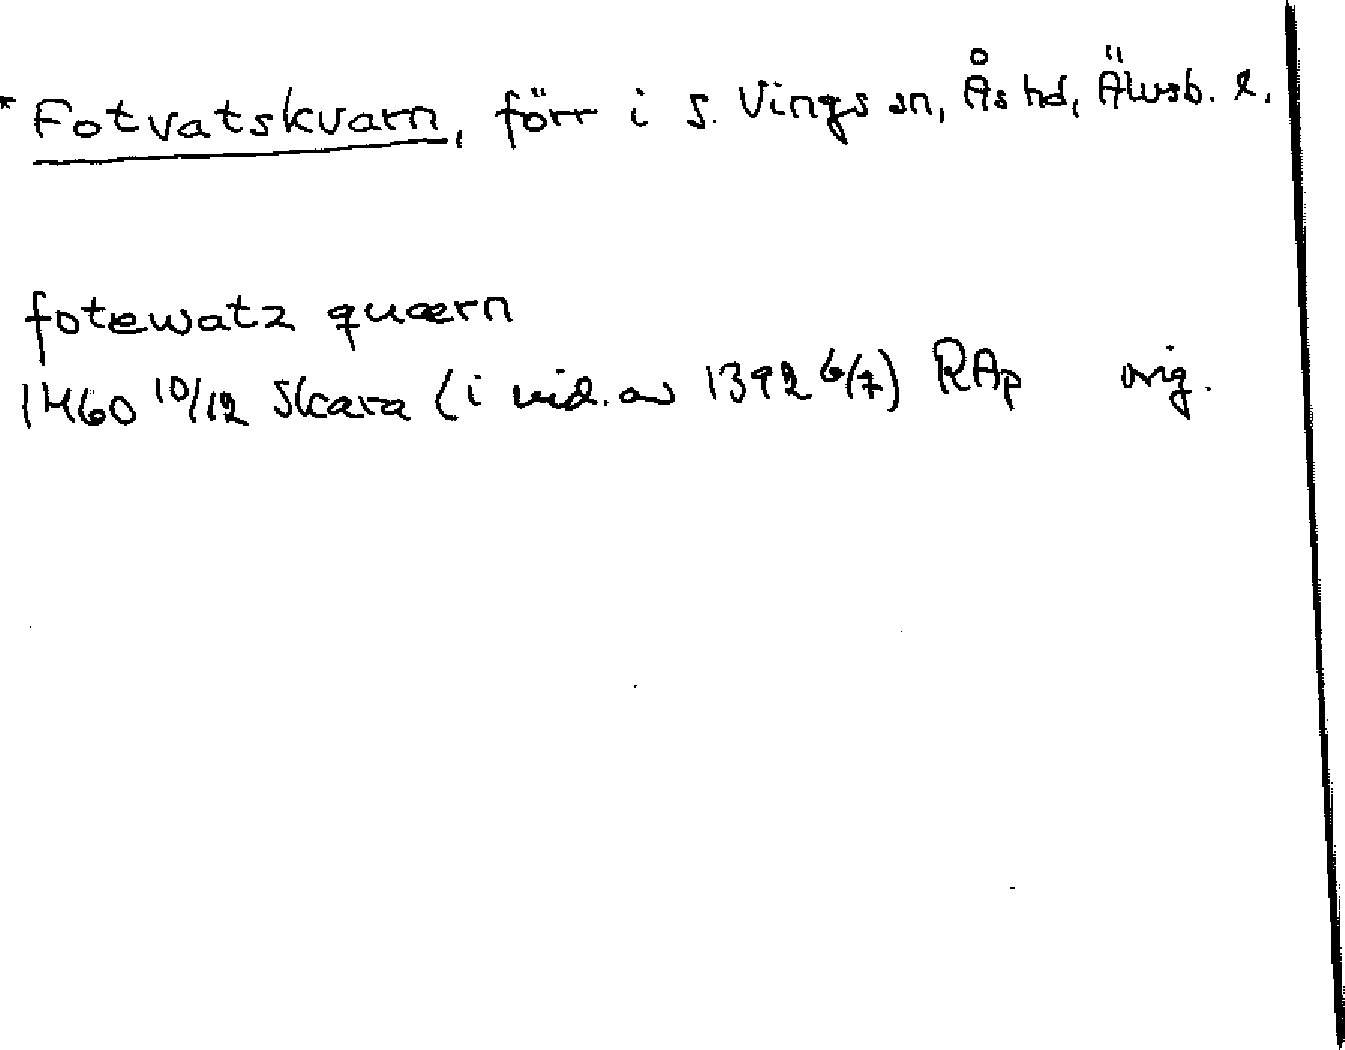 * Fotvatskvarn, förr i S. Vings sn, Ås hd, Älvsb. l.
fotewatz quærn
1460 10/12 Skara (i vid. av 1392 6/7) RAp orig.